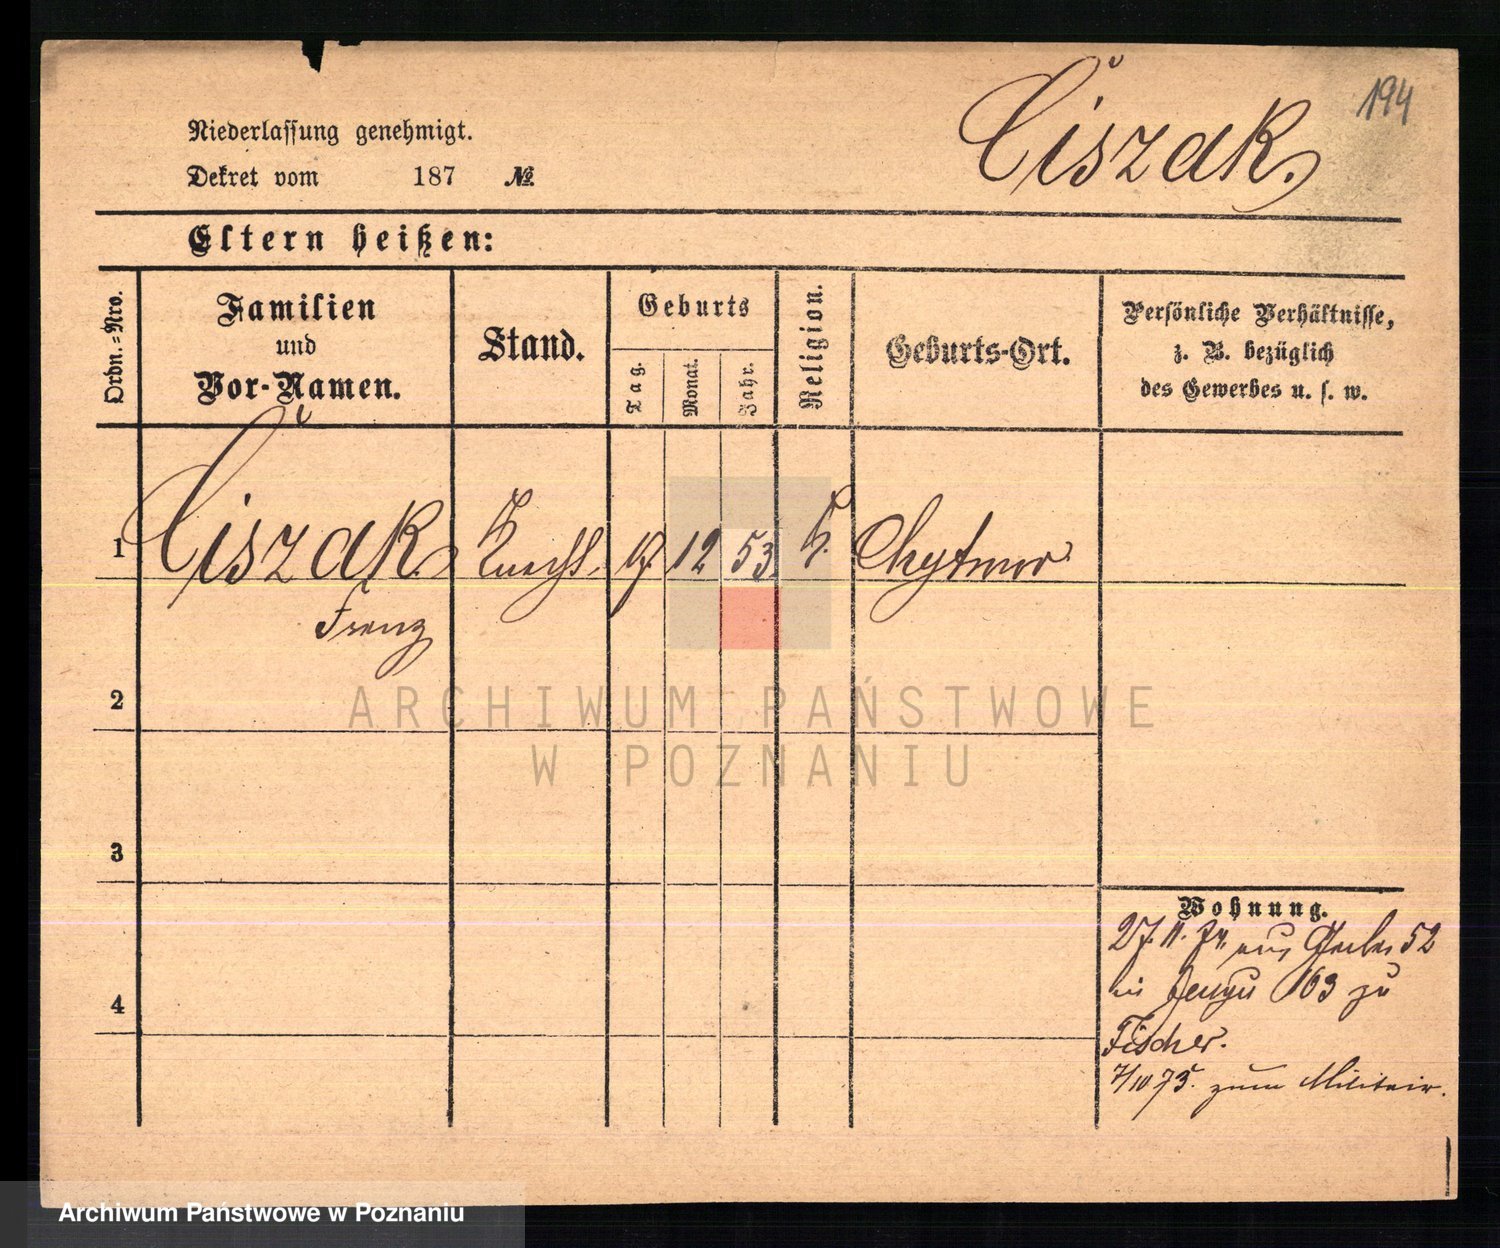 194
Ciszak.
Niederlassung genehmigt.
Dekret vom 187 №
Eltern heißen:
Ordn.-Nro.
Familien
und
Vor-Namen.
Stand.
Geburts
Tag.
Monat.
Jahr.
Religion.
Geburts-Ort.
Persönliche Verhältnisse,
z. B. bezüglich
des Gewerbes u. s. w.
1 Ciszak Knecht. 12 53 k.
Franz
2
3
4
Wohnung.
52
in 163 zu
Fischer.
7/10 75. zum Militair.
ARCHIWUM PAŃSTWOWE
W POZNANIU
Archiwum Państwowe w Poznaniu